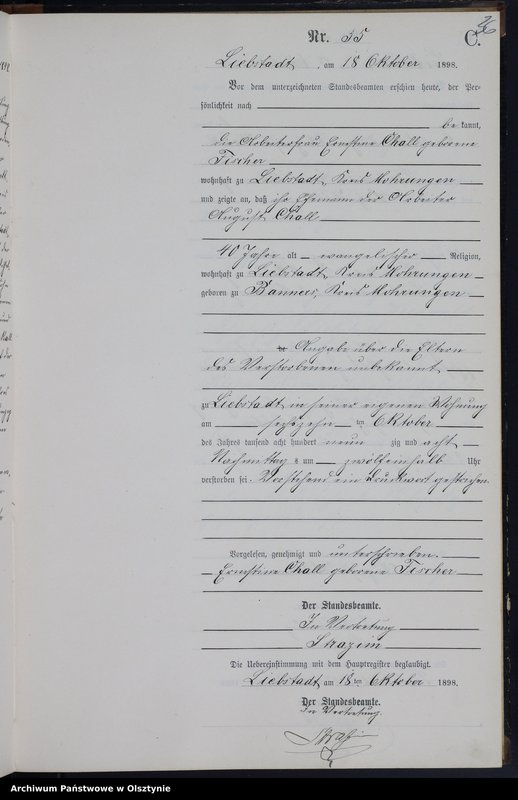 26
Nr. 35
C.
Liebstadt, am 18 Oktober 1898.
Vor dem unterzeichneten Standesbeamten erschien heute, der Per-
sönlichkeit nach
be kannt,
die Arbeiterfrau Ernstine Chall geborene
Fischer
wohnhaft zu Liebstadt, Kreis Mohrungen
und zeigte an, daß ihr Ehemann der Arbeiter
August Chall
40 Jahre alt evangelischer Religion,
wohnhaft zu Liebstadt, Kreis Mohrungen
geboren zu Banners, Kreis Mohrungen
Angabe über die Eltern
des Verstorbenen unbekannt
zu Liebstadt in seiner eigenen Wohnung
am sechszehn ten Oktober
des Jahres tausend acht hundert neun zig und acht
Nachmittag s um zwölfeinhalb Uhr
verstorben sei. Vorstehend ein Druckwort gestrichen.
Vorgelesen, genehmigt und unterschrieben.
Ernstine Chall geborene Fischer
Der Standesbeamte.
In Vertretung
Die Uebereinstimmung mit dem Hauptregister beglaubigt.
Liebstadt, am 18ten Oktober 1898.
Der Standesbeamte.
In Vertretung.
Archiwum Państwowe w Olsztynie